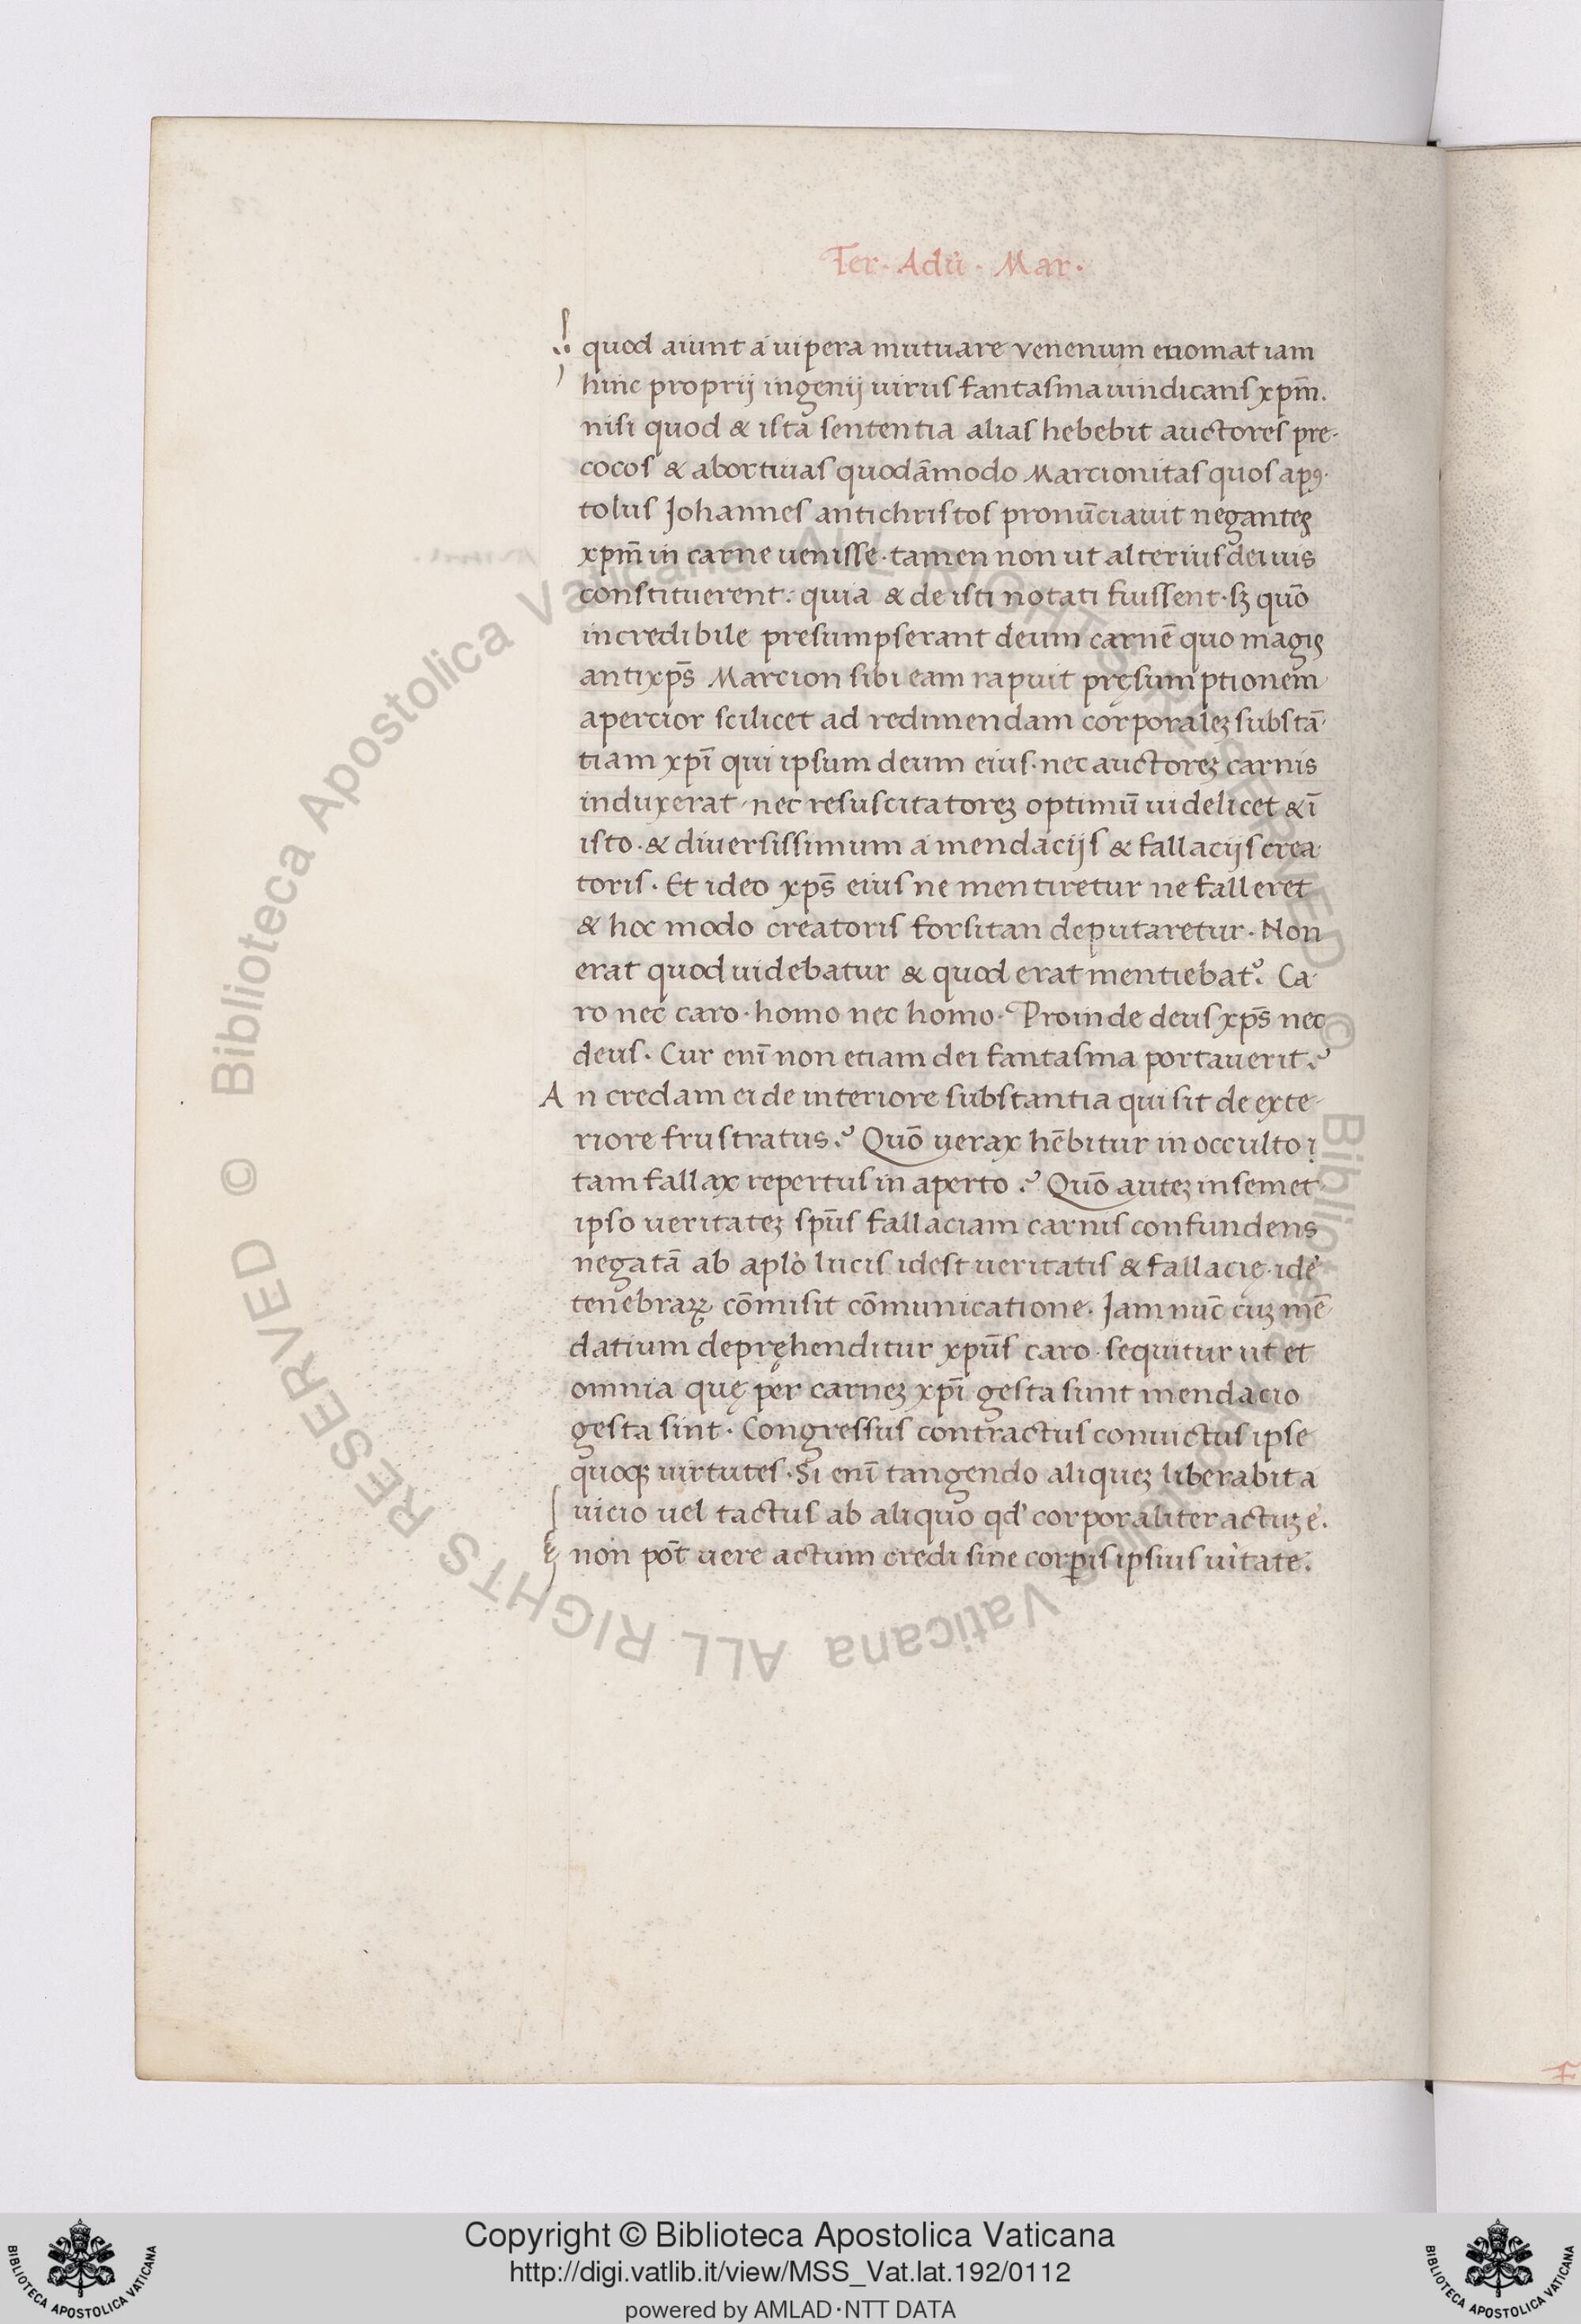 Ter. Adū. Mar.
quod aiunt a uipera mutuare venenum euomat iam
hinc proprij ingenij uirus fantasma uindicans xpm̄.
nisi quod & ista sententia alias hebebit auctores pre-
cocos & abortiuas quodāmodo Marcionitas quos apꝯ-
tolus Johannes antichristos pronūciauit negantes
xpm̄ in carne uenisse. tamen non ut alterius dei uis
constituerent: quia & de isti notati fuissent. sꝫ quō
incredibile presumpserant deum carnē quo magis
antixps̄ Marcion sibi eam rapuit pręsumptionem
apercior scilicet ad redimendam corporaleꝫ substā-
tiam xpī qui ipsum deum eius. nec auctoreꝫ carnis
induxerat. nec resuscitatoreꝫ optimū uidelicet & ī
isto. & diuersissimum a mendacijs & fallacijs crea-
toris. Et ideo xps̄ eius ne mentiretur ne falleret
& hoc modo creatoris forsitan deputaretur. Non
erat quod uidebatur & quod erat mentiebat᷑. Ca-
ro nec caro. homo nec homo. Proinde deus xps̄ nec
deus. Cur enī non etiam dei fantasma portauerit?
An credam ei de interiore substantia qui sit de exte-
riore frustratus? Quō uerax hēbitur in occulto
tam fallax repertus in aperto? Quō auteꝫ in semet
ipso ueritateꝫ spūs fallaciam carnis confundens
negatā ab aplo lucis idest ueritatis & fallacię. idē
tenebraꝝ cōmisit cōmunicatione. Jam nūc cuꝫ mē-
datium depręhenditur xpūs caro. sequitur ut et
omnia quę per carneꝫ xpī gesta sunt mendacio
gesta sint. Congressus contractus conuictus ipse
quoqꝫ uirtutes. Si enī tangendo aliqueꝫ liberabit a
uicio uel tactus ab aliquo qd' corporaliter actuꝫ ē.
non pōt uere actum credi sine corꝑis ipsius uitate.
© Biblioteca Apostolica Vaticana ALL RIGHTS RESERVED
© Biblioteca Apostolica Vaticana ALL RIGHTS RESERVED
Copyright © Biblioteca Apostolica Vaticana
http://digi.vatlib.it/view/MSS_Vat.lat.192/0112
powered by AMLAD·NTT DATA
BIBLIOTECA APOSTOLICA VATICANA
BIBLIOTECA APOSTOLICA VATICANA